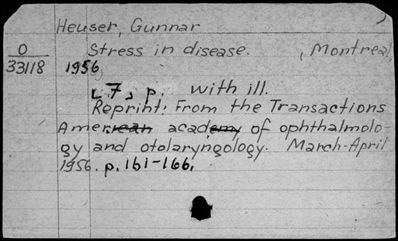 Heuser, Gunnar
O Stress in disease. , Montreal,
33118 1956
[7, p. with ill.
Reprint: From the Transactions
American academy of ophthalmolo-
gy and otolaryngology. March-April
1956. p. 161-166.